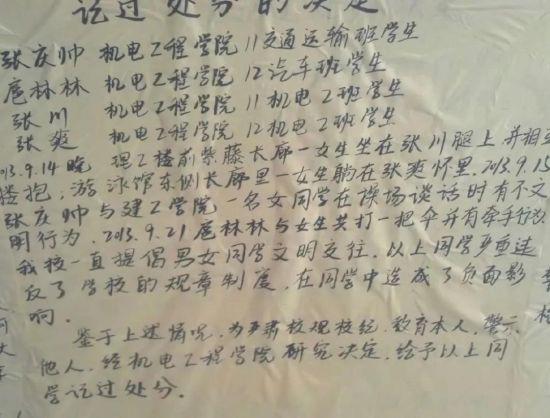 记过处分的决定
张庆帅 机电工程学院11交通运输班学生
扈林林 机电工程学院12汽车班学生
张川 机电工程学院11机电2班学生
张爽 机电工程学院12机电2班学生
2013.9.14晚 理工楼前紫藤长廊一女生坐在张川腿上并相互
搂抱,游泳馆东侧长廊里一女生躺在张爽怀里.2013.9.15
张庆帅与建工学院一名女同学在操场谈话时有不文
明行为.2013.9.21扈林林与女生共打一把伞并有牵手行为.
我校一直提倡男女同学文明交往.以上同学严重违
反了学校的规章制度,在同学中造成了负面影
响.
鉴于上述情况,为严肃校规校纪,教育本人,警示
他人,经机电工程学院研究决定,给予以上同
学记过处分.